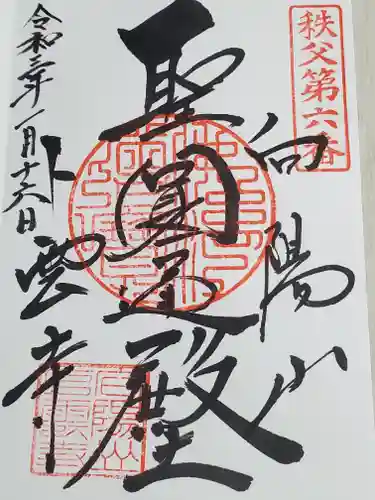 秩父第六番
向陽山
聖圓通殿
卜雲寺
令和三年一月十六日